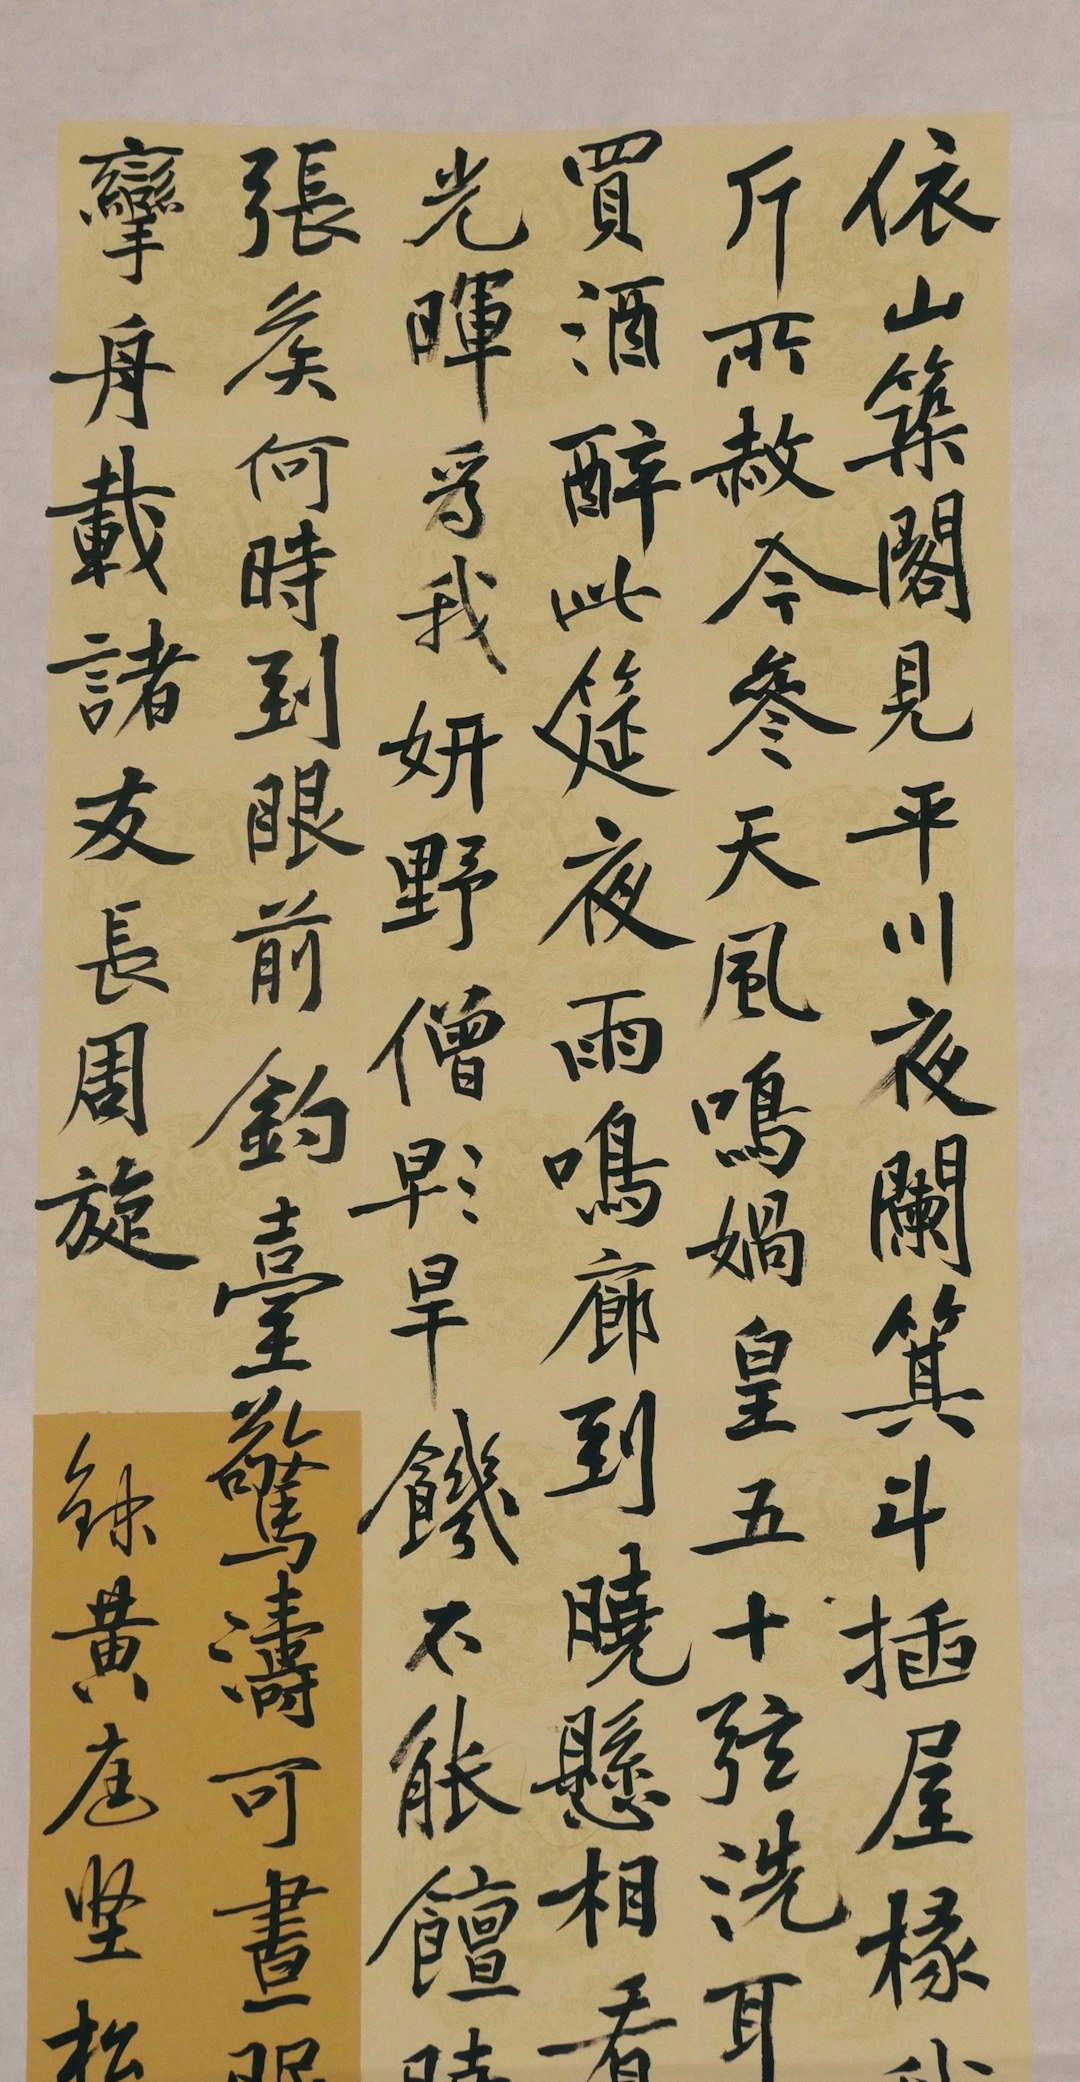 依山築閣見平川夜闌箕斗插屋椽我
斤所赦今參天風鳴媧皇五十弦洗耳
買酒醉此筵夜雨鳴廊到曉懸相看
光暉為我妍野僧早旱饑不能饘曉
張矣何時到眼前釣臺驚濤可晝眠
攣舟載諸友長周旋
錄黃庭坚松